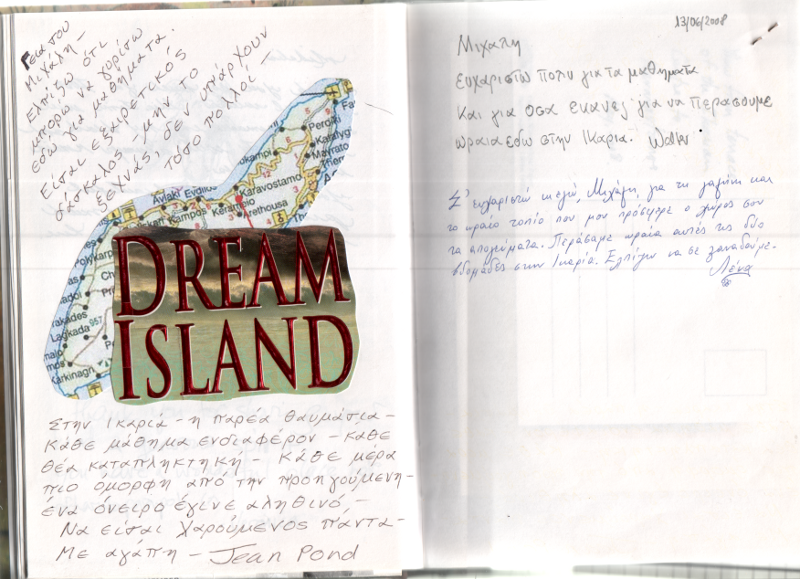 Γεια σου
Μιχάλη –
Ελπίζω ότι
μπορω να γυρίσω
εδώ για μαθηματα.
Είσαι εξαιρετικος
δάσκαλος – μην το
ξεχνάς, δεν υπάρχουν
τόσο πολλοί –
Fa
Perdi
Kataligy
Mavrato
kampi
Avlaki Evdilo
Karavostamo
Kampos Kerame
Arethousa
Polykarp
rakades
Lagkada 957
Karkinagri
DREAM
ISLAND
Στην Ικαριά – η παρέα θαυμάσια –
Κάθε μάθημα ενδιαφέρον – κάθε
θέα καταπληκτηκή – κάθε μέρα
πιο όμορφη από την προηγούμενη –
ένα όνειρο έγινε αληθινό, –
Να είσαι χαρούμενος πάντα –
Με αγάπη – Jean Pond
13/06/2008
Μιχαλη
ευχαριστω πολυ για τα μαθηματα
και για οσα εκανες για να περασουμε
ωραια εδω στην Ικαρια.
Σ' ευχαριστώ κι εγώ, Μιχάλη, για τη γαλήνη και
το ωραίο τοπίο που μου πρόσφερε ο χώρος σου
τα απογεύματα. Περάσαμε ωραία αυτές τις δύο
βδομάδες στην Ικαρία. Ελπίζω να σε ξαναδούμε.
Λένα